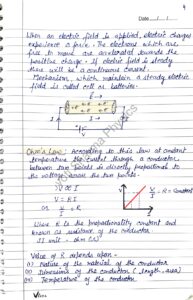 Date..../..../....
When an electric field is applied, electric charges
experience a force. The electrons which are
free to move are accelerated towards the
positive charge. If electric field is steady
there will be a continuous current.
Mechanism, which maintain a steady electric
field is called cell or batteries.
Ohm's Law: According to this law at constant
temperature the current through a conductor
between two points is directly proportional to
the voltage across the two points.
V ∝ I
V = RI
V/I = R = Constant
Where R is the proportionality constant and
known as resistance of the conductor
SI unit - ohm (Ω)
Value of R depends upon -
(i) Nature of the material of the conductor
(ii) Dimensions of the conductor (Length, area)
(iii) Temperature of the conductor